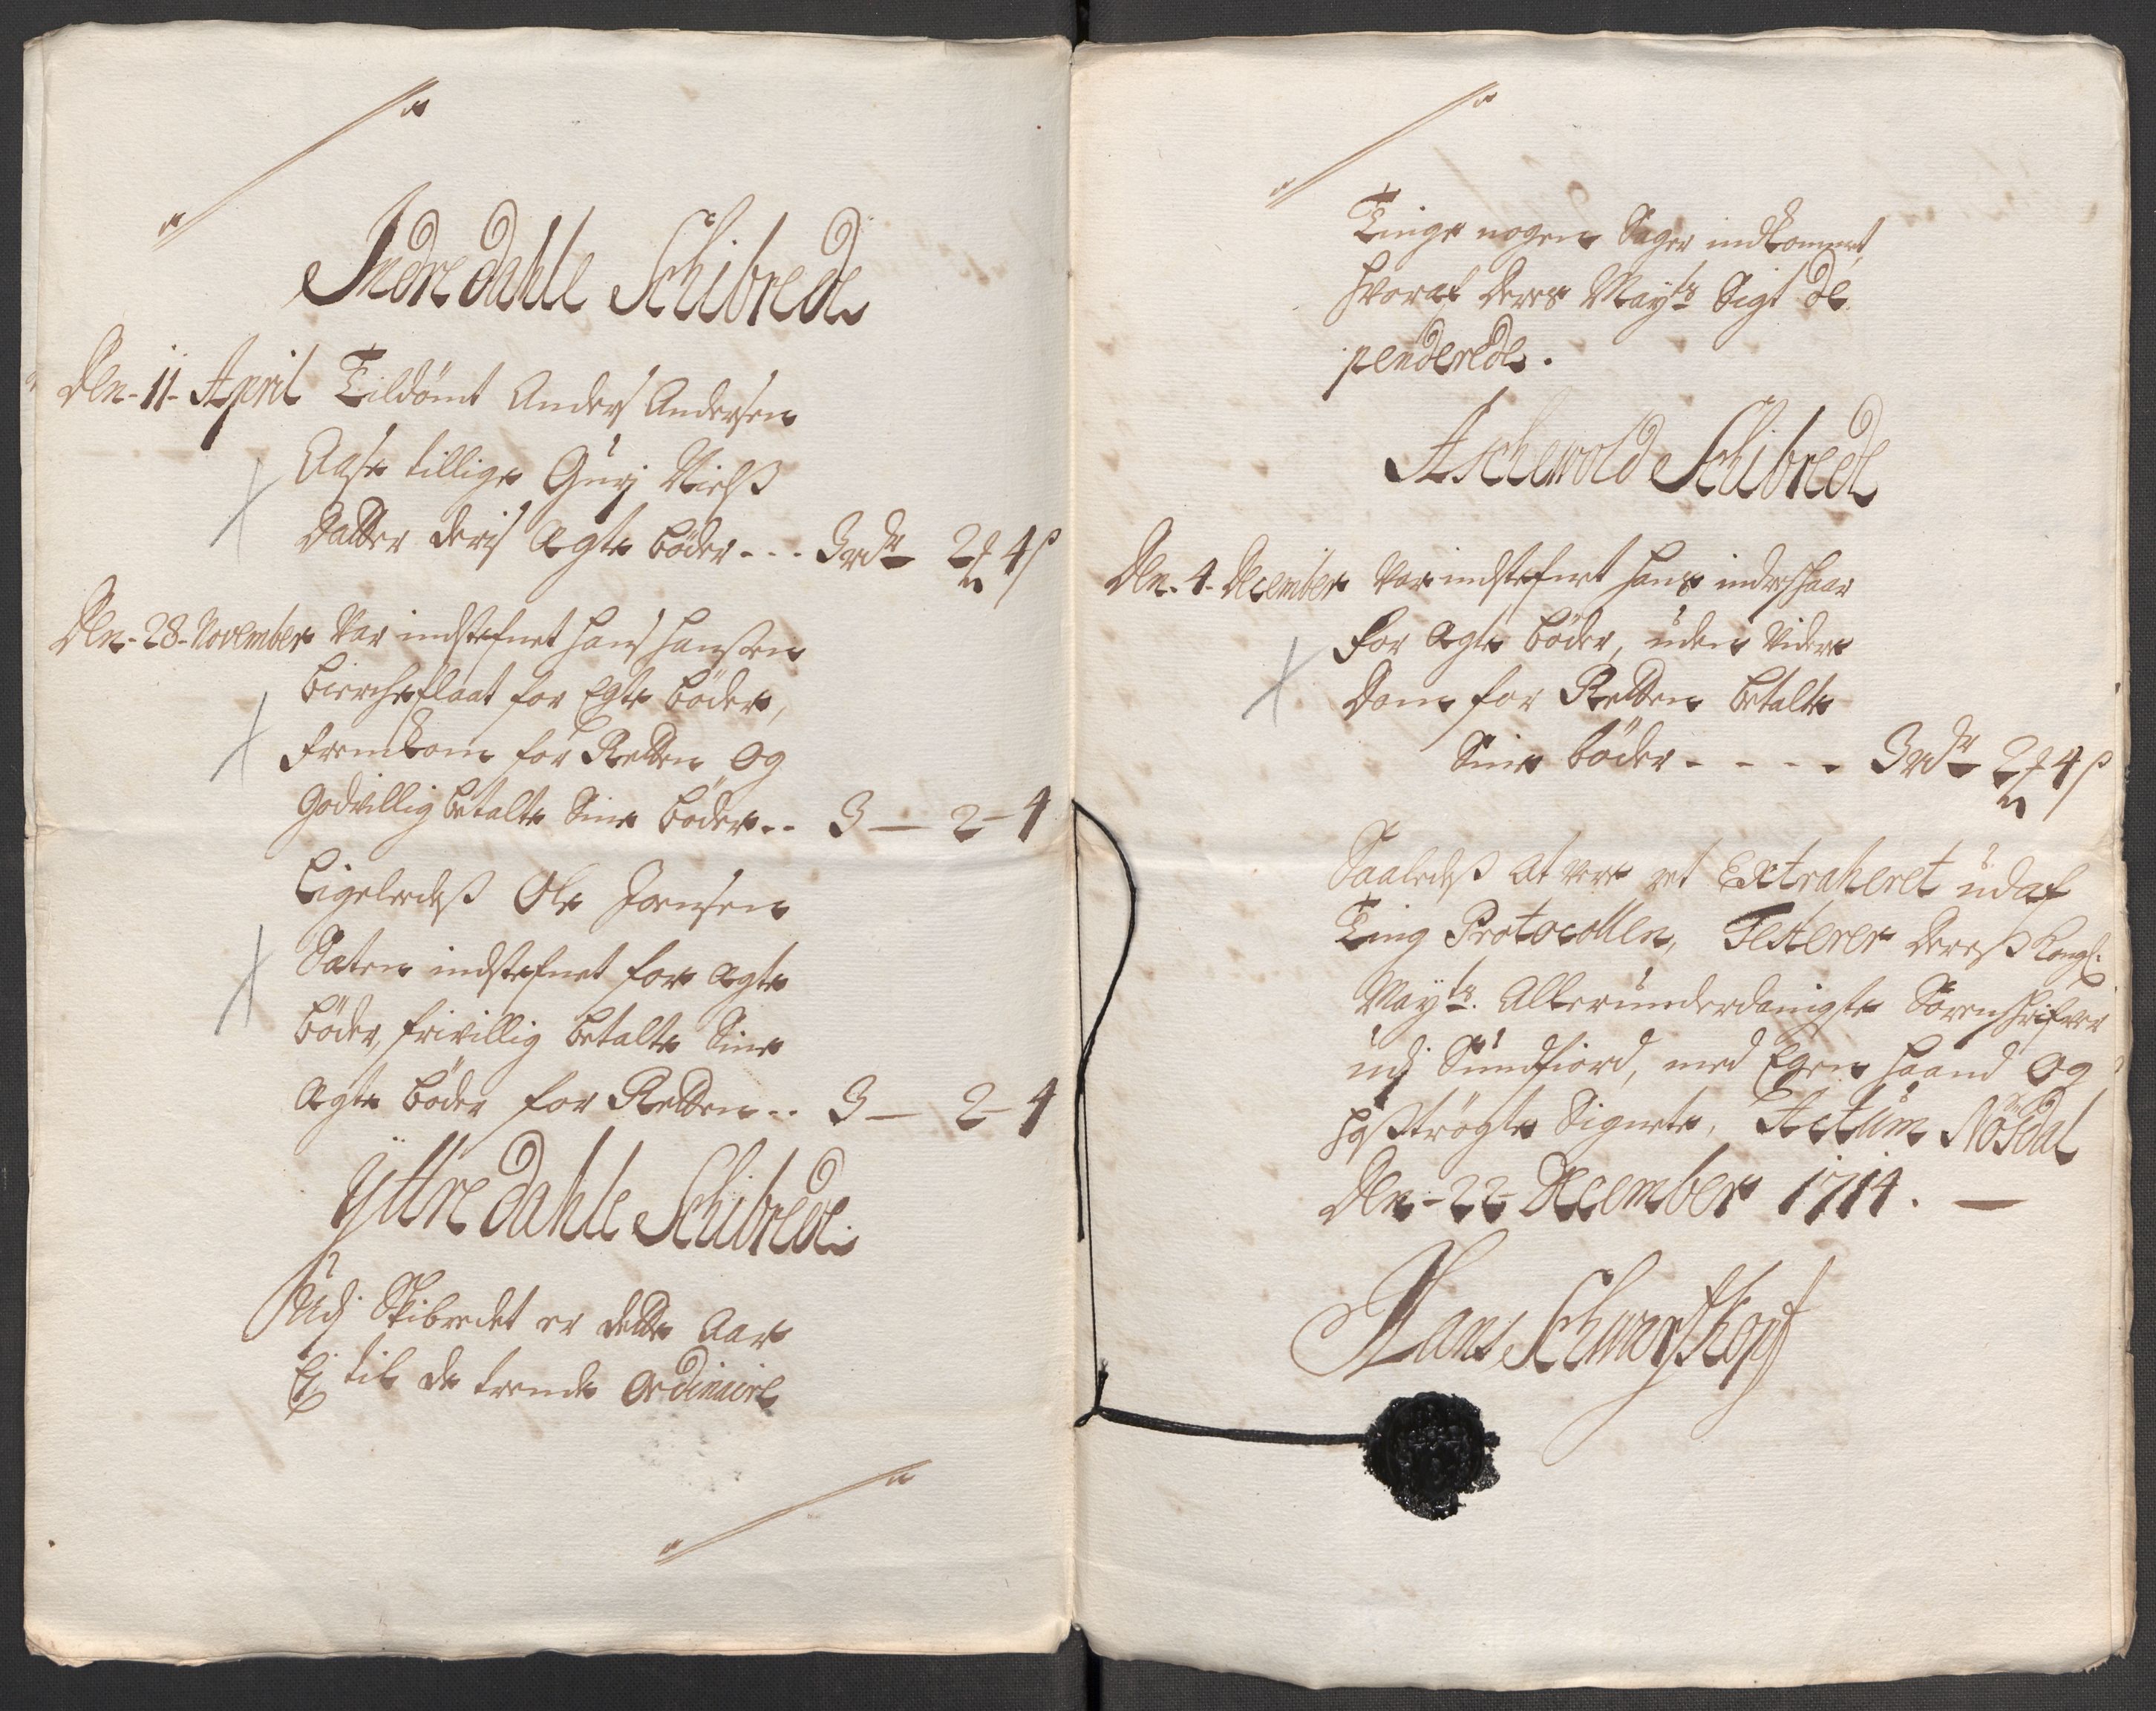 Indre Dahle Schibrede
Den - 11 - April Tildømt Anders Andersen
Aase tillige Guri Nielß
Datter deris Ægte bøder - - - 3 rdr 2 ₰ 4 ß
Den - 28 - November Var indstefnet Hans Hansen
Bircheflaat for Egte bøder,
fremkom for Retten og
godvillig betalte Sine bøder - - 3 — 2 - 4
Ligeledeß Ole Joensen
Saten indstefnet for ægte
bøder, frivillig betalte Sine
Ægte bøder for Retten - - 3 — 2 - 4
Ÿttre Dahle Schibrede.
Udj Skibredet er dette Aar
Ej til de trende Ordinaire
Tinge nogen Sager indkommet,
hvoraf Deres Mayts Sigt de
penderede.
Aschevold Schibrede
Den - 4 - December Var indstefnet Hans indreHaar
for Ægte bøder, uden videre
Dom for Retten betalte
Sine bøder - - - - 3 rdr 2 ₰ 4 ß
Saaledeß at være ret Extraheret udaf
Ting Protocollen, Testerer Dereß Kongl:
Mayts. Allerunderdanigste Sorenskrifver
udj Sundfiord, med Egen haand og
hoßtrögte Signete, Actum Nösdal
Den - 22 - December 1714. —
Hans Schwartzkopf